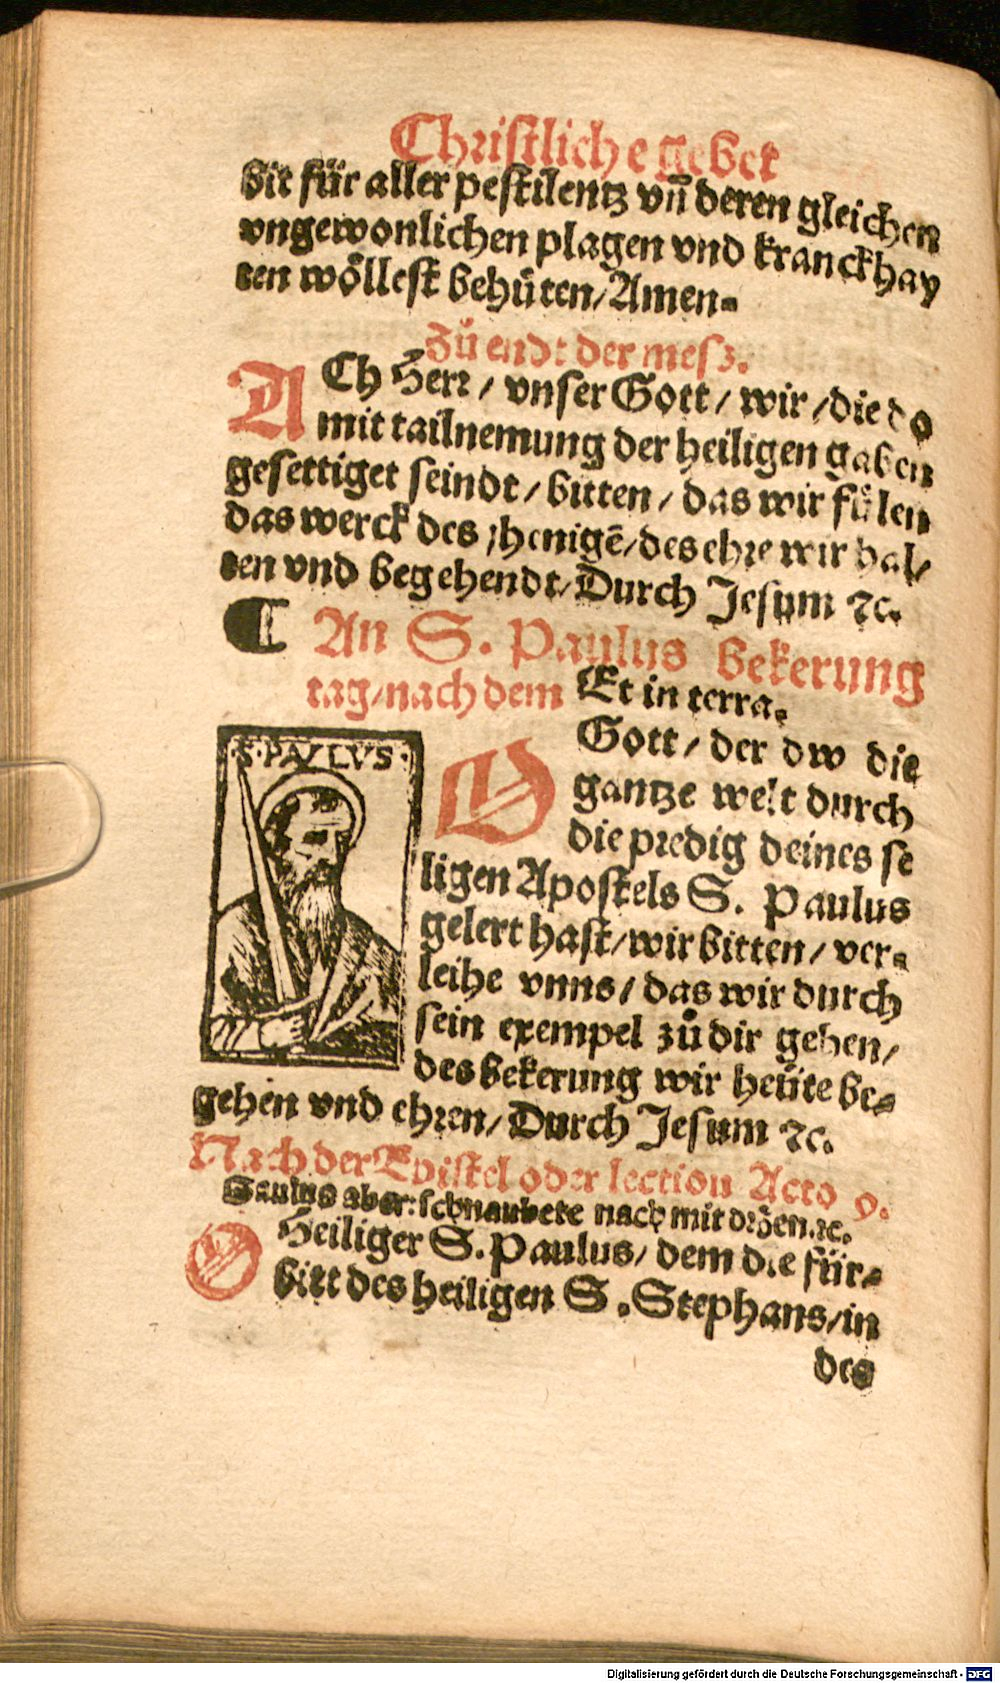 Christliche gebet
bit für aller pestilentz vñ deren gleichen
vngewonlichen plagen vnd kranckhay
ten wöllest behüten/Amen-
Zů endt der mesz.
ACh Herr / vnser Gott / wir / die do
mit tailnemung der heiligen gaben
gesettiget seindt / bitten / das wir fülen
das werck des jhenigē/des ehre wir hal/
ten vnd begehendt/Durch Jesum ⁊c.
¶ An S. Paulus bekerung
tag/nach dem Et in terra.
S·PAVLVS·
O Gott / der dw die
gantze welt durch
die predig deines se
ligen Apostels S. Paulus
gelert hast/wir bitten / ver-
leihe vnns / das wir durch
sein exempel zů dir gehen/
des bekerung wir heüte be-
gehen vnd ehren/Durch Jesum ⁊c.
Nach der Epistel oder lection Acto 9.
Saulus aber schnaubete nach mit dröen.⁊c.
O Heiliger S. Paulus/ dem die für-
bitt des heiligen S. Stephans/in
des
Digitalisierung gefördert durch die Deutsche Forschungsgemeinschaft - DFG